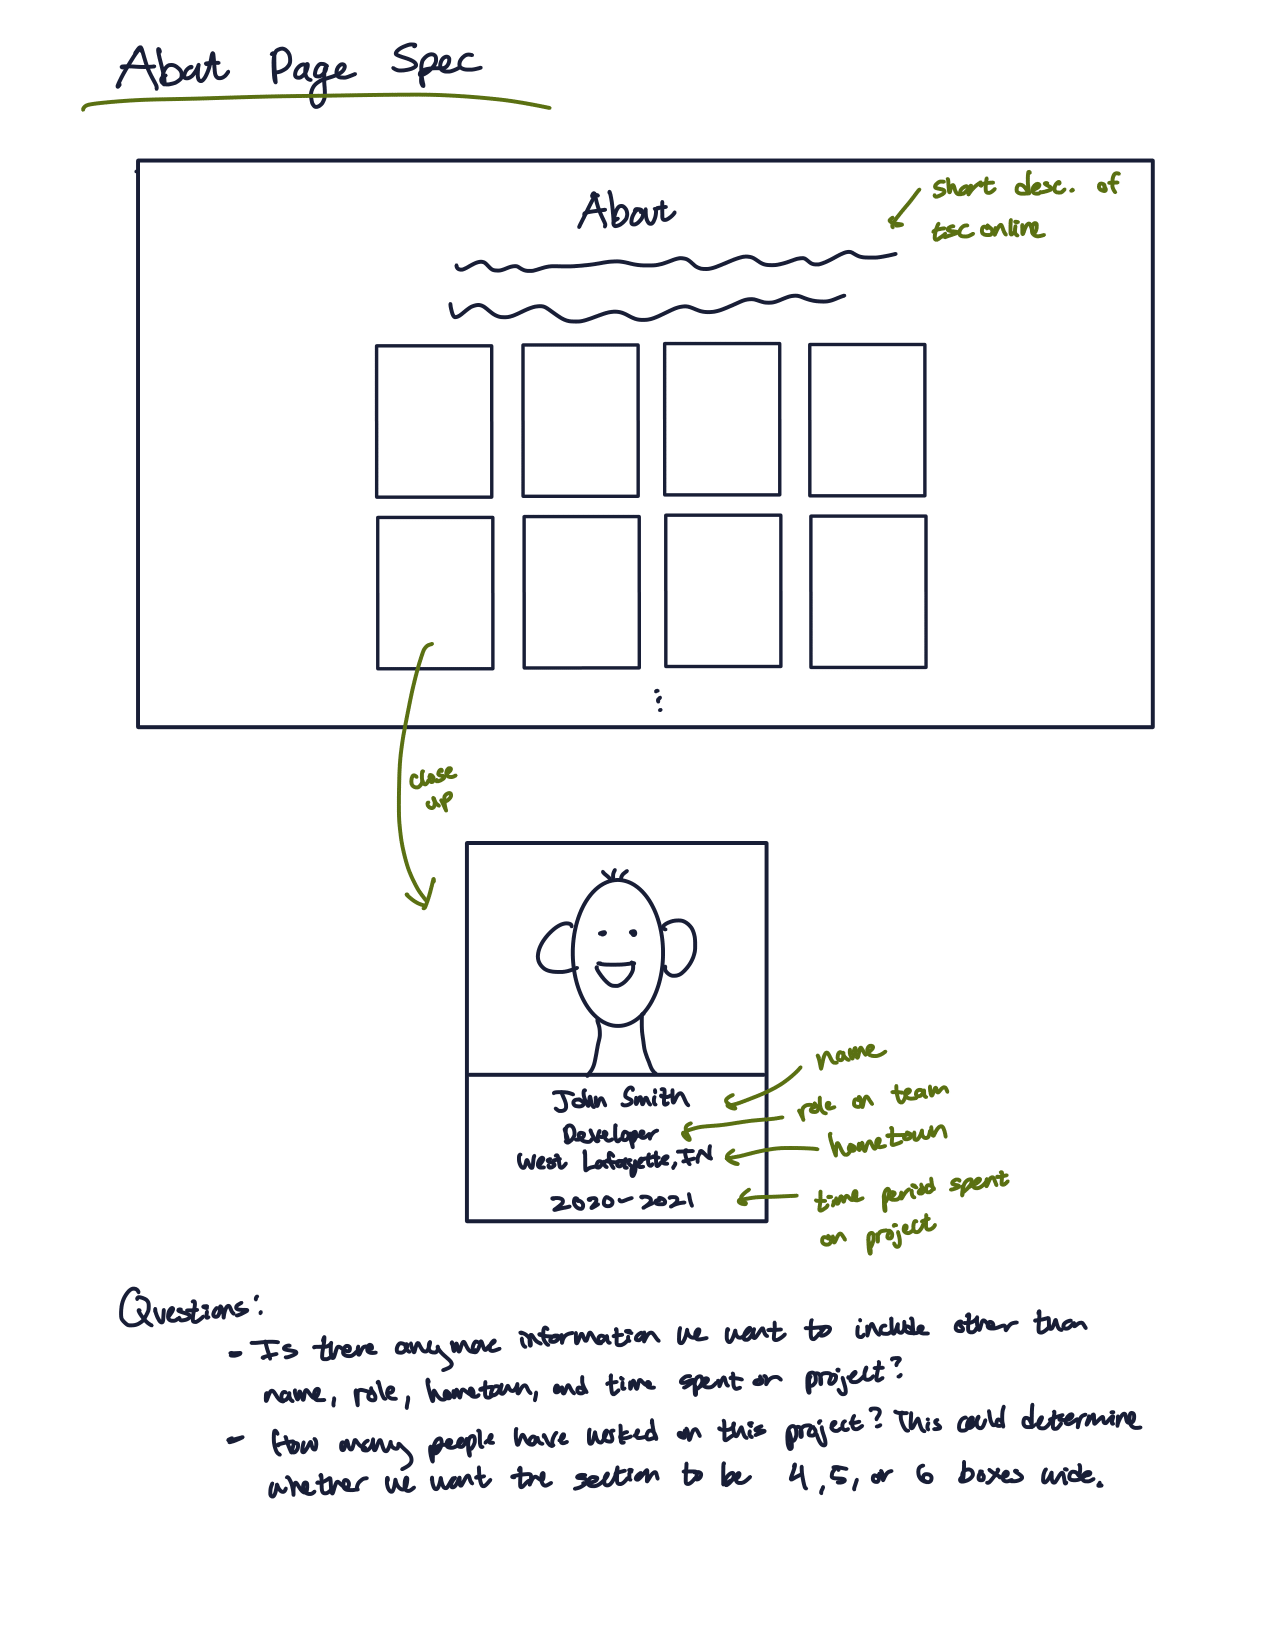 About Page Spec
About
short desc. of
tsc online
close
up
John Smith
Developer
West Lafayette, IN
2020-2021
name
role on team
hometown
time period spent
on project
Questions:
- Is there any more information we want to include other than
name, role, hometown, and time spent on project?
- How many people have worked on this project? This could determine
whether we want the section to be 4, 5, or 6 boxes wide.